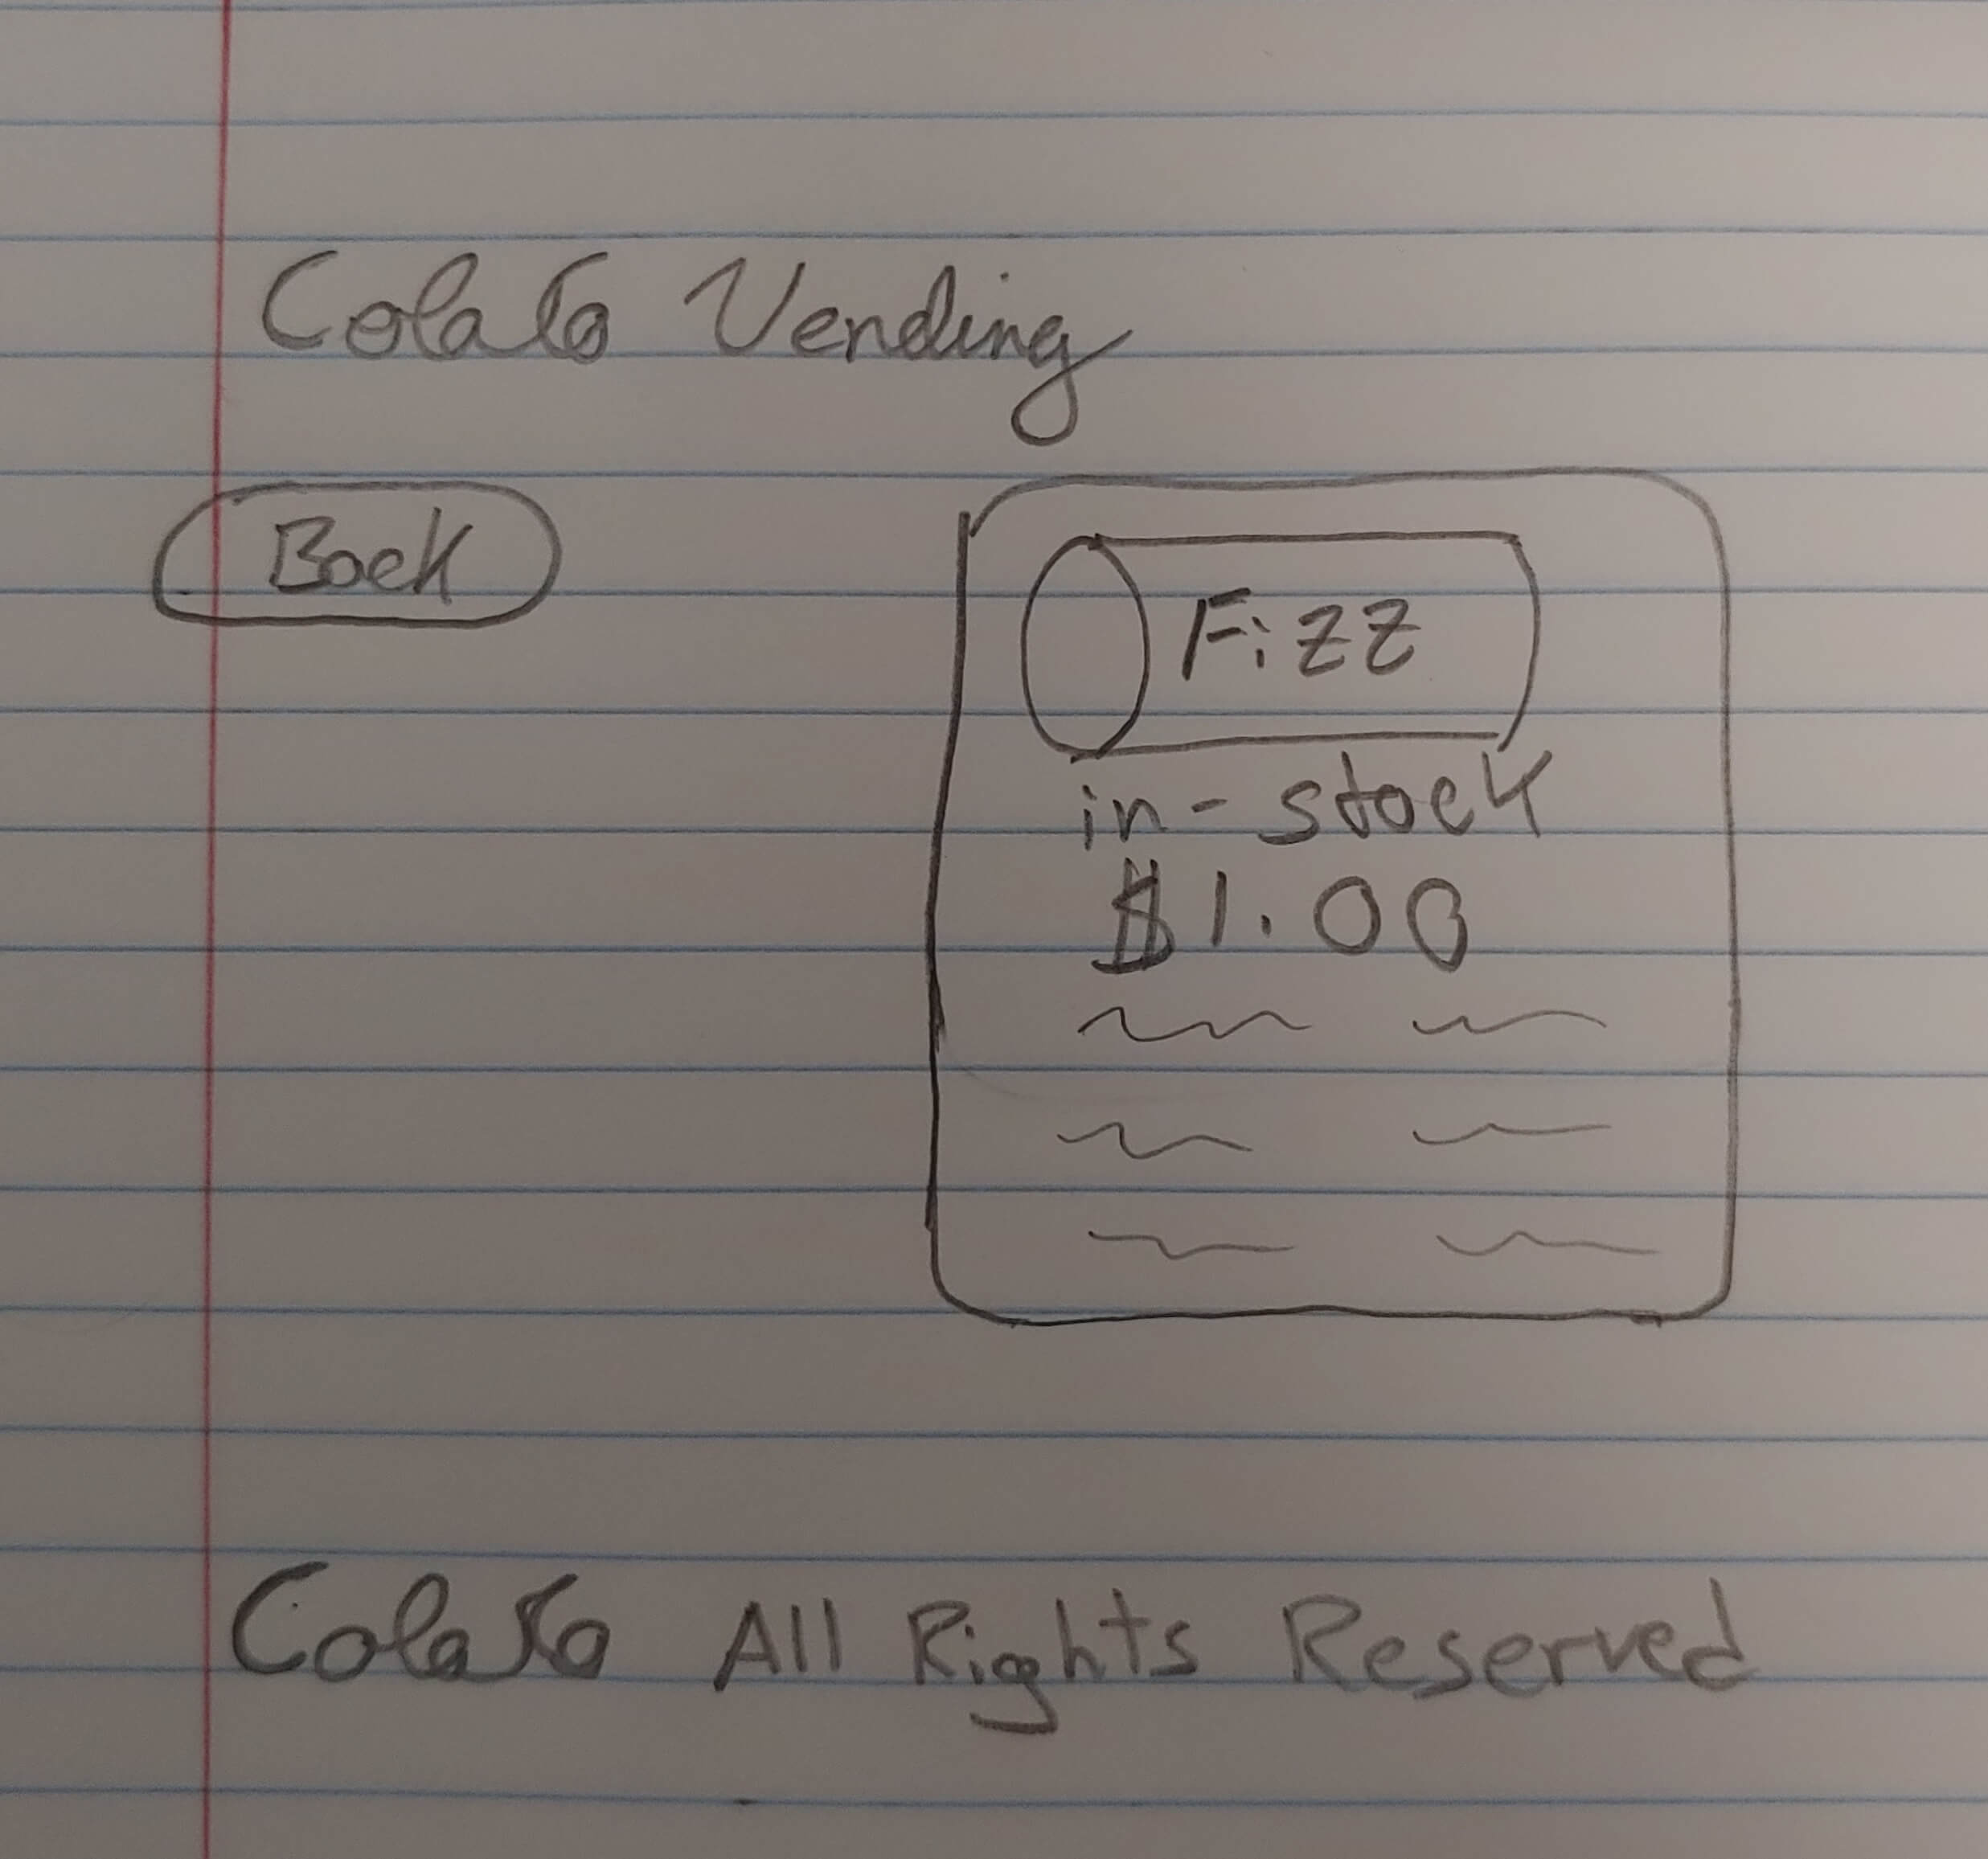 ColaCo Vending
Back
Fizz
in-stock
$1.00
ColaCo All Rights Reserved